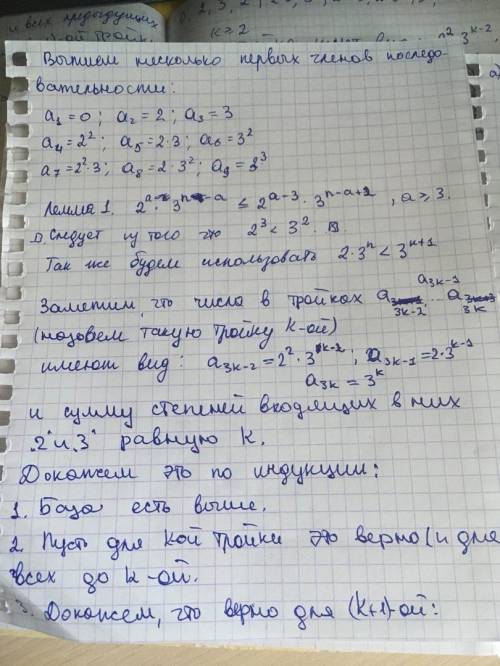 и всех предыдущих
k ≥ 2
Выпишем несколько первых членов последо-
вательности:
a₁=0; a₂=2; a₃=3
a₄=2²; a₅=2·3; a₆=3²
a₇=2²·3; a₈=2·3²; a₉=3³
Лемма 1. 2^a · 3^(n-a) ≤ 2^(a-3) · 3^(n-a+2), a ≥ 3.
Следует из того что 2³ < 3².
Так же будем использовать 2·3ⁿ < 3ⁿ⁺¹
Заметим, что числа в тройках a_(3k-2) a_(3k-1) a_(3k)
(назовем такую тройку k-ой)
имеют вид: a_(3k-2) = 2²·3^(k-2); a_(3k-1) = 2·3^(k-1)
a_(3k) = 3^k
и сумму степеней входящих в них
"2" и "3" равную k.
Докажем это по индукции:
1. База есть выше.
2. Пусть для k-ой тройки это верно (и для
всех до k-ой.
3. Докажем, что верно для (k+1)-ой: